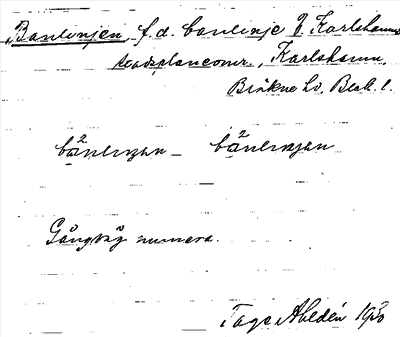 Banlinjen, f.d. banlinje i Karlshamns
stadsplaneomr., Karlshamn,
Bräkne hd, Blek. l.
bánlinjan – bánlinjan
Gångväg numera.
Tage Ahldén 1950